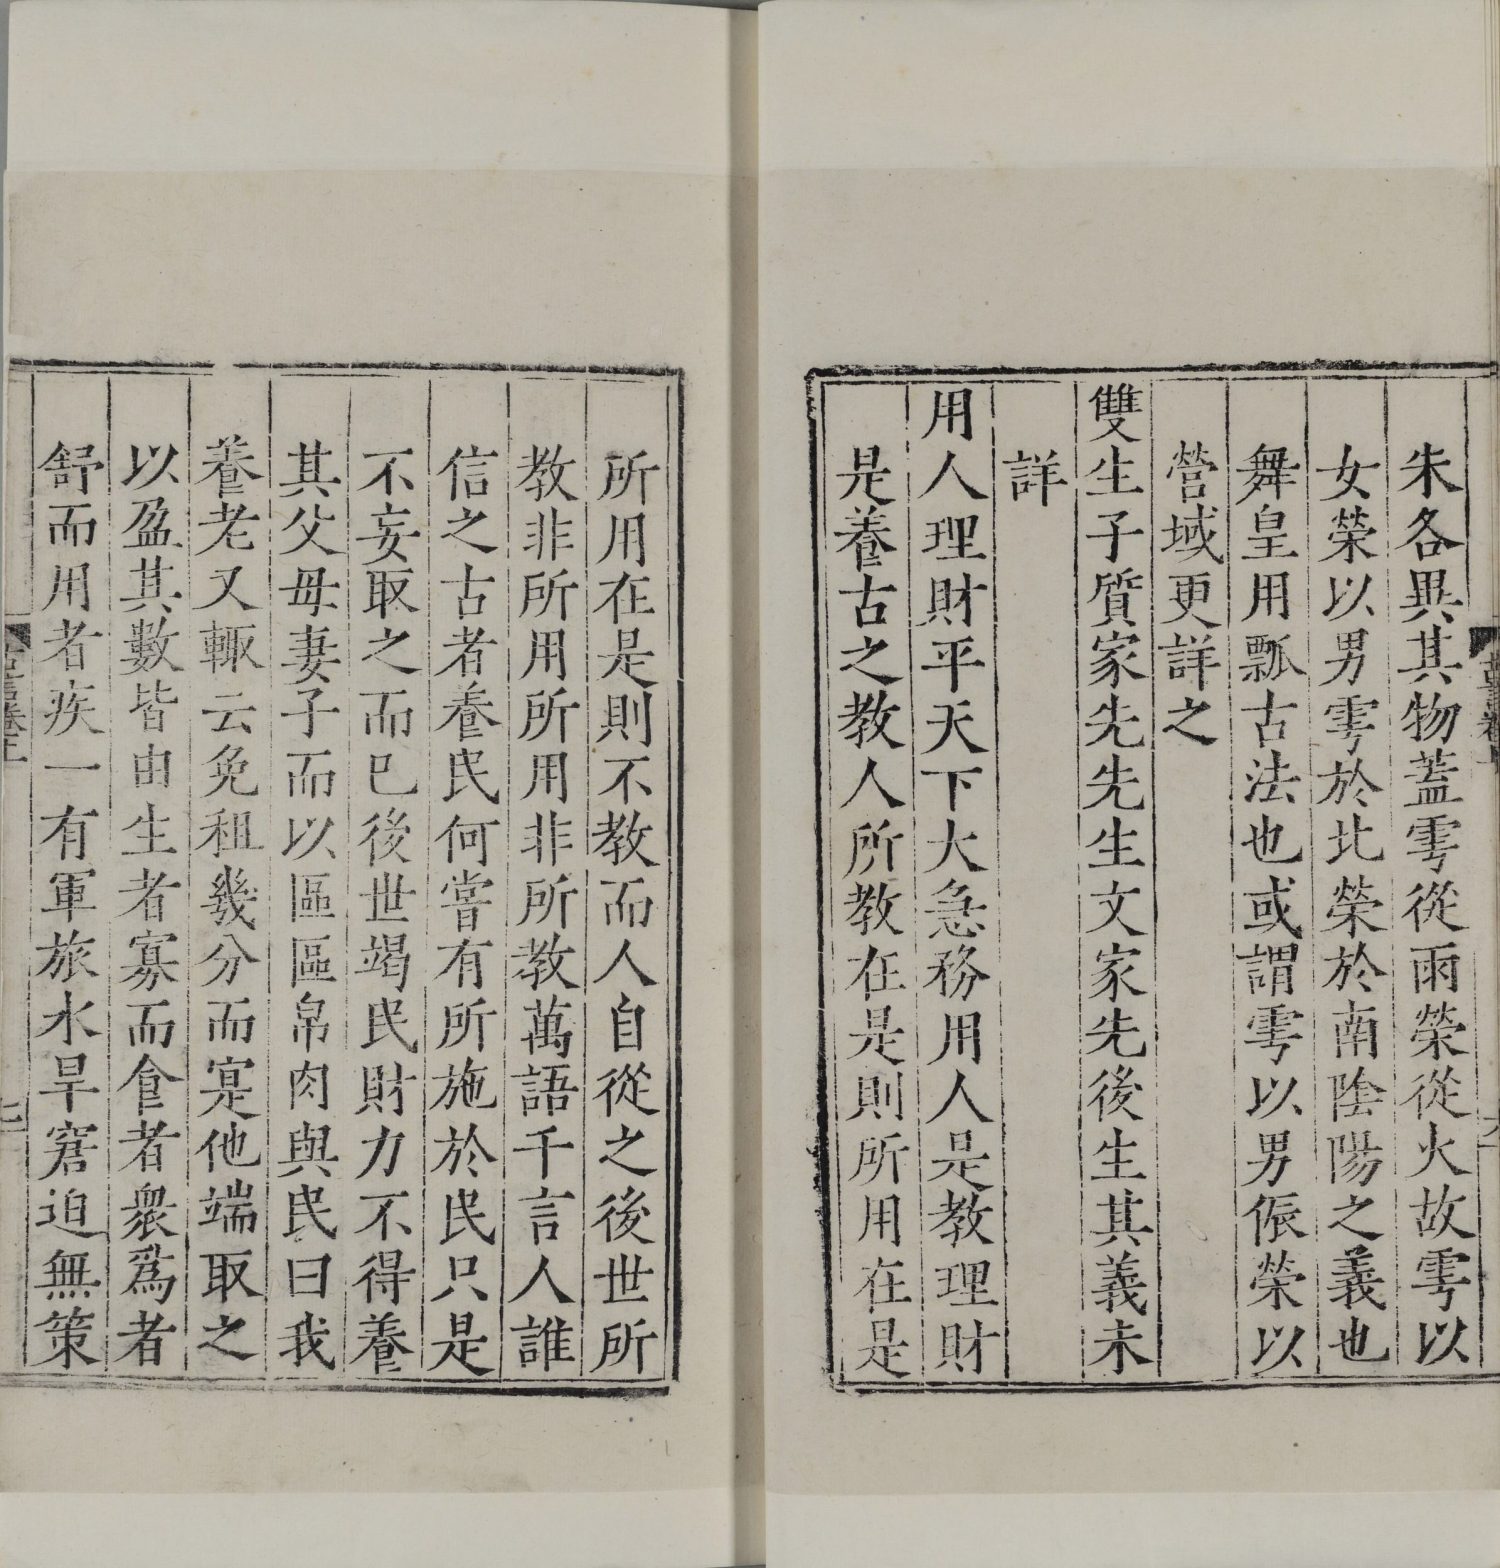 朱各異其物蓋雩從雨禜從火故雩以
女禜以男雩於北禜於南陰陽之義也
舞皇用瓢古法也或謂雩以男侲禜以
營域更詳之
雙生子質家先先生文家先後生其義未
詳
用人理財平天下大急務用人是教理財
是養古之教人所教在是則所用在是
所用在是則不教而人自從之後世所
教非所用所用非所教萬語千言人誰
信之古者養民何嘗有所施於民只是
不妄取之而已後世竭民財力不得養
其父母妻子而以區區帛肉與民曰我
養老又輙云免租幾分而寔他端取之
以盈其數皆由生者寡而食者衆爲者
舒而用者疾一有軍旅水旱窘迫無策